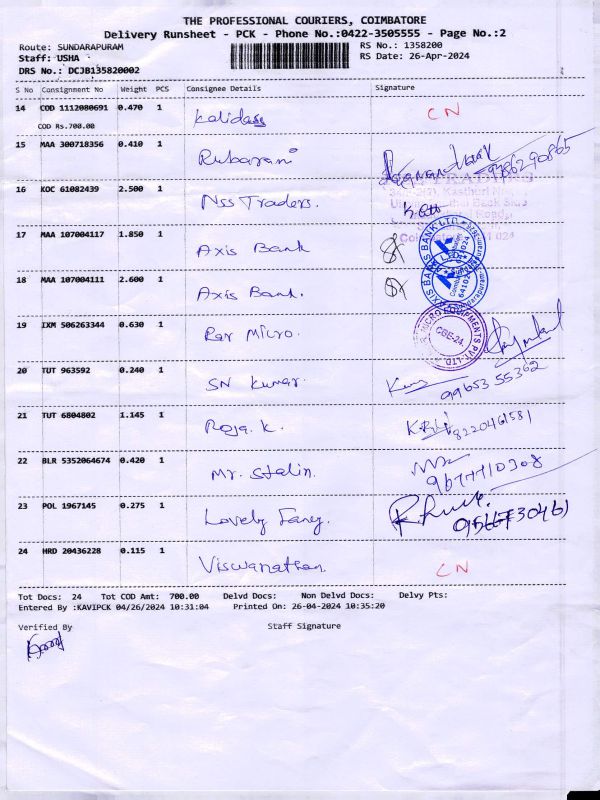 THE PROFESSIONAL COURIERS, COIMBATORE
Delivery Runsheet - PCK - Phone No.:0422-3505555 - Page No.:2
Route: SUNDARAPURAM RS No.: 1358200
Staff: USHA RS Date: 26-Apr-2024
DRS No.: DCJB135820002
S No Consignment No Weight PCS Consignee Details Signature
14 COD 1112080691 0.470 1 Kalidass CN
COD Rs.700.00
15 MAA 300718356 0.410 1 Rubarani 9386290865
16 KOC 61082439 2.500 1 NSS Traders.
17 MAA 107004117 1.850 1 Axis Bank
AXIS BANK LTD.
18 MAA 107004111 2.600 1 Axis Bank.
AXIS BANK LTD.
19 IXM 506263344 0.630 1 Rar Micro.
MICRO EQUIPMENTS PVT. LTD.
CBE-24.
20 TUT 963592 0.240 1 SN Kumar. 99653 55362
21 TUT 6804802 1.145 1 Roja. K. 8220461581
22 BLR 5352064674 0.420 1 Mr. Stalin.
23 POL 1967145 0.275 1 Lovely Fancy.
24 HRD 20436228 0.115 1 Viswanathan CN
Tot Docs: 24 Tot COD Amt: 700.00 Delvd Docs: Non Delvd Docs: Delvy Pts:
Entered By :KAVIPCK 04/26/2024 10:31:04 Printed On: 26-04-2024 10:35:20
Verified By Staff Signature